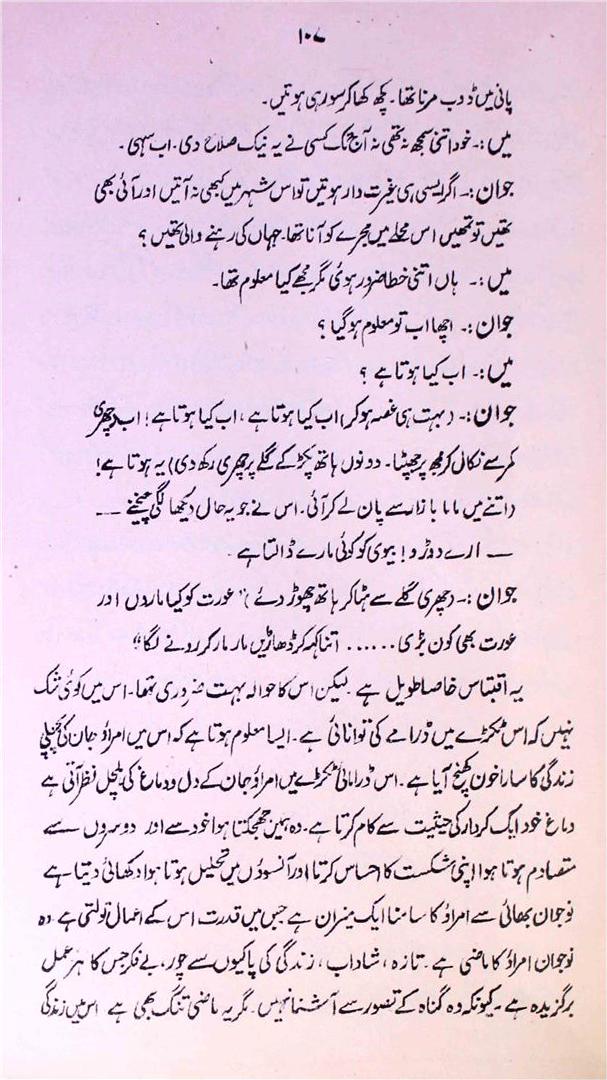 ۱۰۷
پانی میں ڈوب مرنا تھا۔ کچھ کھا کر سو رہی ہوتیں۔
میں :۔ خود اتنی سمجھ نہ تھی نہ آج تک کسی نے یہ نیک صلاح دی۔ اب سہی۔
جوان :۔ اگر ایسی ہی غیرت دار ہوتیں تو اس شہر میں کبھی نہ آتیں اور آئی بھی
تھیں تو تمھیں اس محلے میں مجرے کو آنا تھا۔ جہاں کی رہنے والی تھیں ؟
میں :۔ ہاں اتنی خطا ضرور ہوئی مگر مجھے کیا معلوم تھا۔
جوان :۔ اچھا اب تو معلوم ہو گیا ؟
میں :۔ اب کیا ہوتا ہے ؟
جوان :۔ (بہت ہی غصہ ہو کر) اب کیا ہوتا ہے، اب کیا ہوتا ہے! اب (چھری
کمر سے نکال کر مجھ پر جھپٹا۔ دونوں ہاتھ پکڑ کے گلے پر چھری رکھ دی) یہ ہوتا ہے!
(اتنے میں ماما بازار سے پان لے کر آئی۔ اس نے جو یہ حال دیکھا لگی چیخنے —
— ارے دوڑو! بیوی کو کوئی مارے ڈالتا ہے
جوان :۔ (چھری گلے سے ہٹا کر ہاتھ چھوڑ دئے) "عورت کو کیا ماروں اور
عورت بھی کون بڑی ...... اتنا کہہ کر ڈھاڑیں مار مار کر رونے لگا"
یہ اقتباس خاصا طویل ہے لیکن اس کا حوالہ بہت ضروری تھا۔ اس میں کوئی شک
نہیں کہ اس ٹکڑے میں ڈرامے کی توانائی ہے۔ ایسا معلوم ہوتا ہے کہ اس میں امراؤ جان کی پچھلی
زندگی کا سارا خون کھنچ آیا ہے۔ اس ڈرامائی ٹکڑے میں امراؤ جان کے دل و دماغ کی ہلچل نظر آتی ہے
دماغ خود ایک کردار کی حیثیت سے کام کرتا ہے۔ وہ ہمیں جھجکتا ہوا خود سے اور دوسروں سے
متصادم ہوتا ہوا اپنی شکست کا احساس کرتا اور آنسوؤں میں تحلیل ہوتا ہوا دکھائی دیتا ہے
نوجوان بھائی سے امراؤ کا سامنا ایک میزان ہے جس میں قدرت اس کے اعمال تولتی ہے وہ
نوجوان امراؤ کا ماضی ہے۔ تازہ، شاداب، زندگی کی پاکیوں سے چور، بے فکر جس کا ہر عمل
برگزیدہ ہے۔ کیونکہ وہ گناہ کے تصور سے آشنا نہیں۔ مگر یہ ماضی تنگ بھی ہے اس میں زندگی